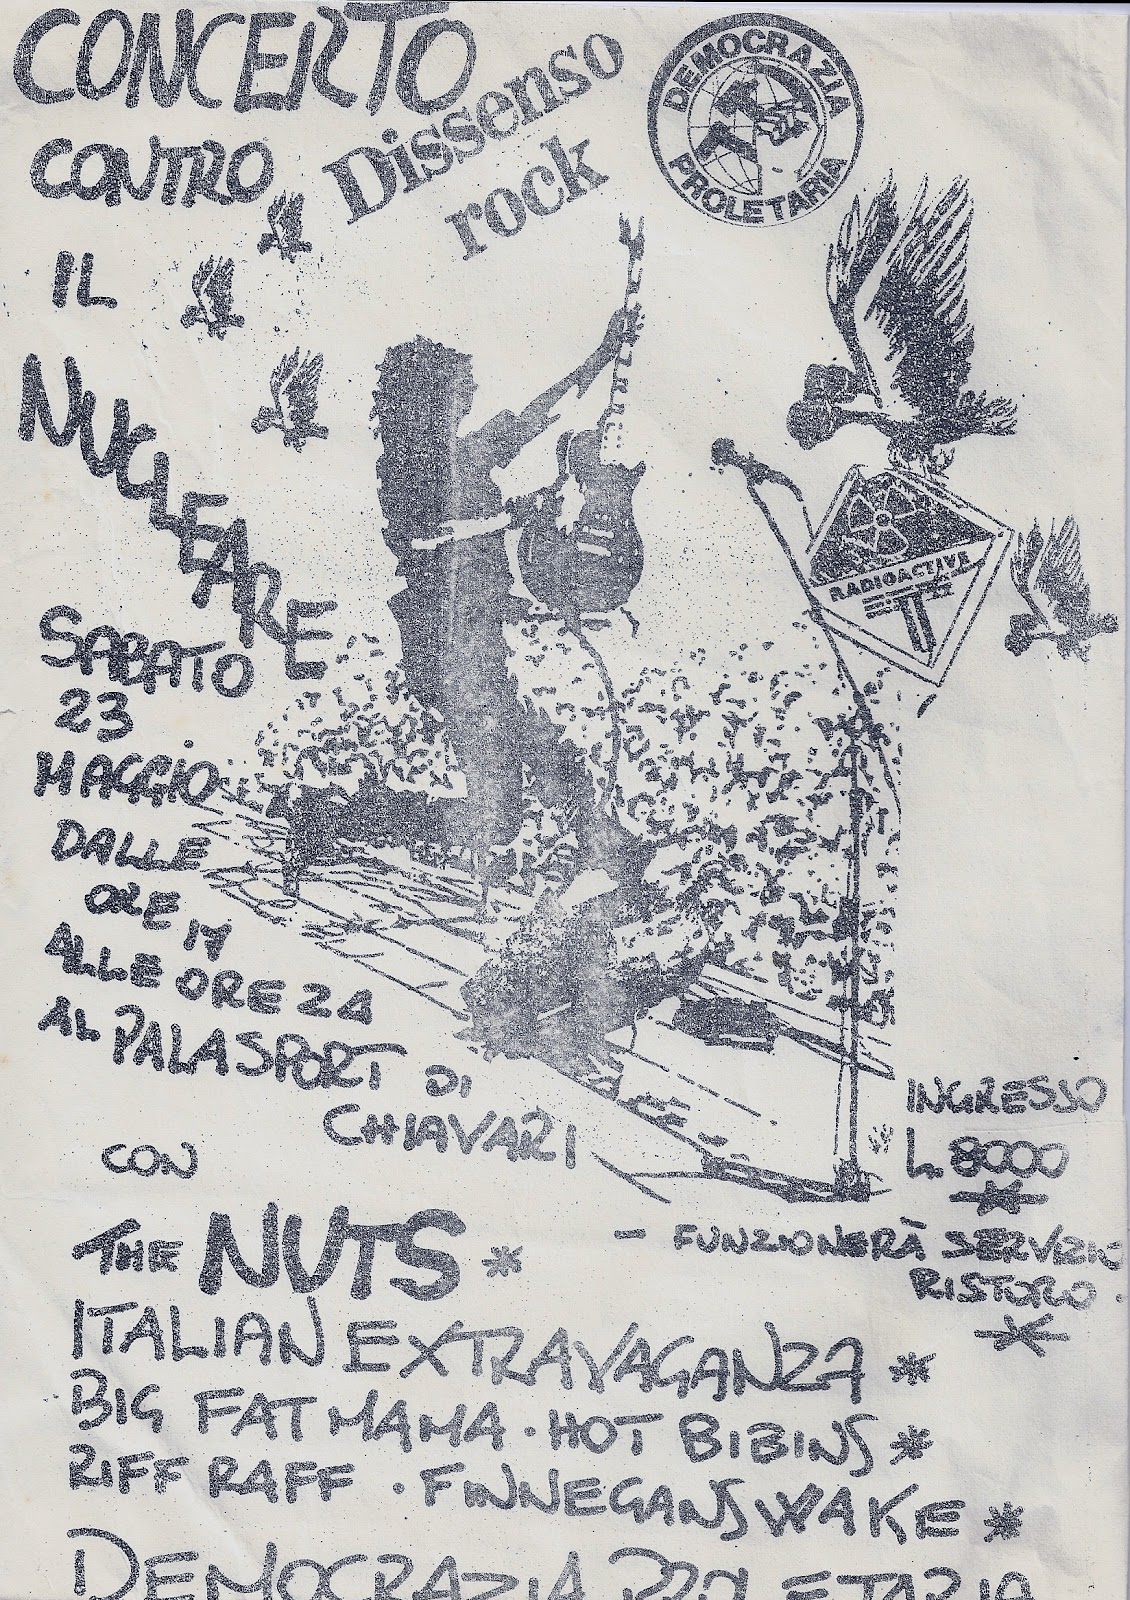 CONCERTO
CONTRO
IL
NUCLEARE
Dissenso
rock
DEMOCRAZIA
PROLETARIA
RADIOACTIVE
SABATO
23
MAGGIO
DALLE
ORE 17
ALLE ORE 24
AL PALASPORT DI
CHIAVARI
INGRESSO
L. 8000
- FUNZIONERÀ SERVIZIO
RISTORO.
CON
THE NUTS *
ITALIAN EXTRAVAGANZA *
BIG FAT MAMA · HOT BIBINS *
RIFF RAFF · FINNEGANS WAKE *
DEMOCRAZIA PROLETARIA